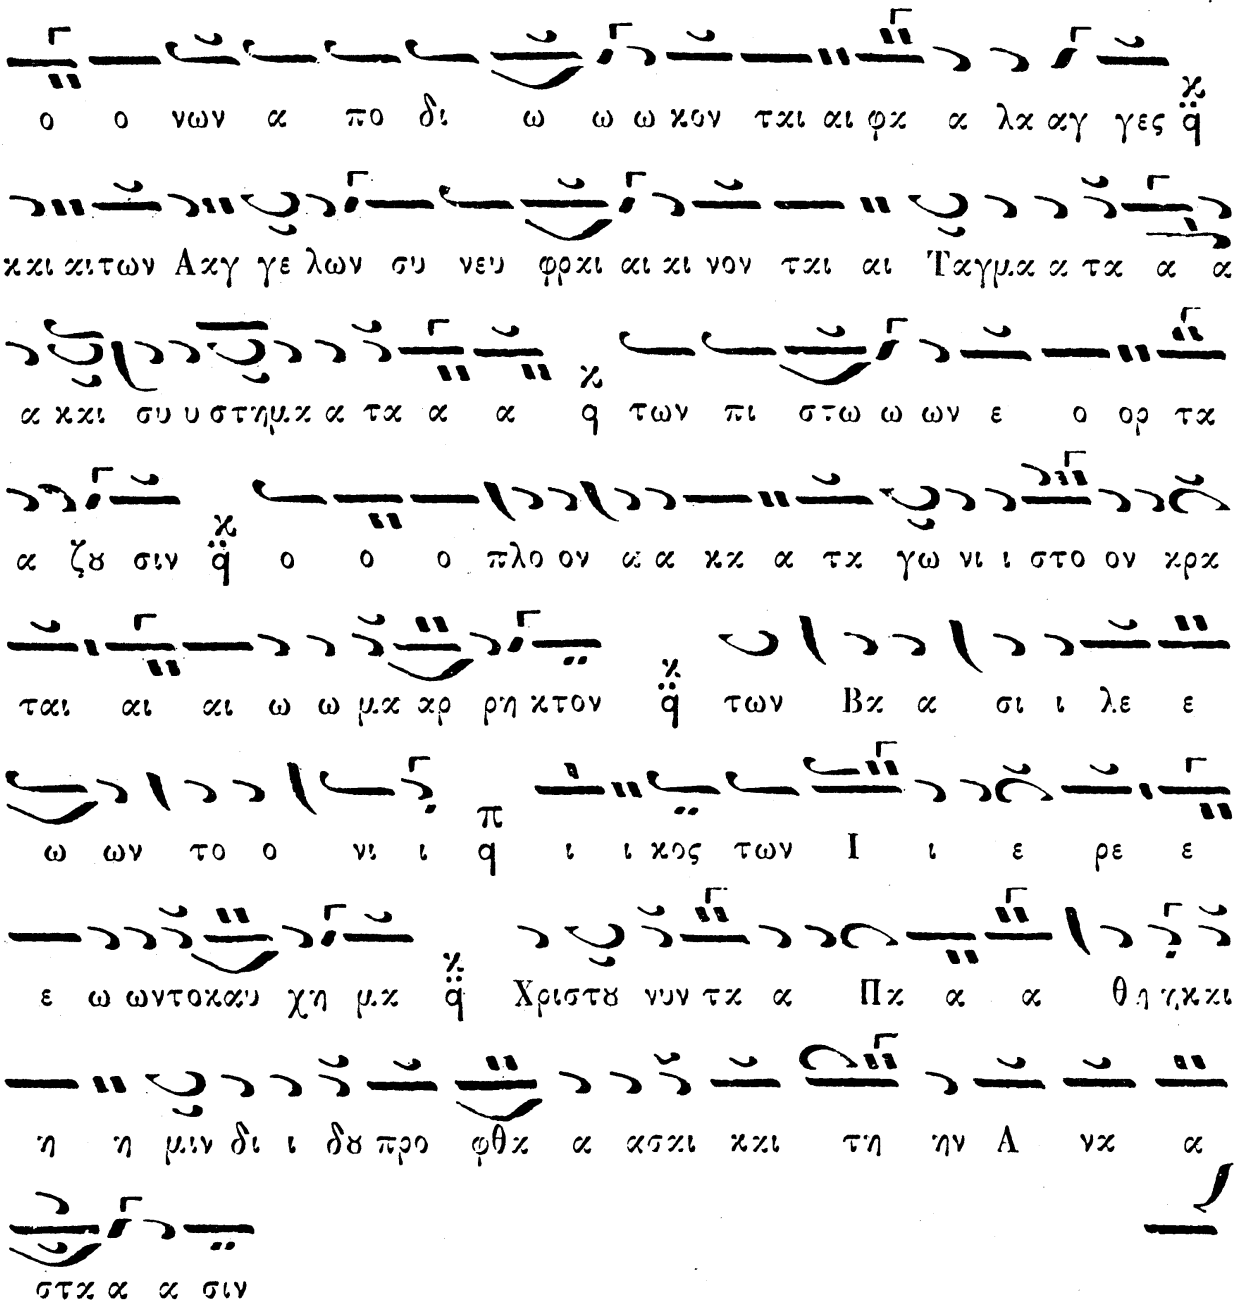 ο ο νων α πο δι ω ω ω κον ται αι φα α λα αγ γες ϥ
και αιτων Ααγ γε λων συ νευ φραι αι αι νον ται αι Ταγμα α τα α α
α και συ υ στημα α τα α α ϥ των πι στω ω ων ε ο ορ τα
α ζȣ σιν ϥ ο ο ο πλο ον α α κα α τα γω νι ι στο ον κρα
ται αι αι ω ω μα αρ ρη κτον ϥ των Βα α σι ι λε ε
ω ων το ο νι ι π ϥ ι ι κος των Ι ι ε ρε ε
ε ω ωντοκαυ χη μα ϥ Χριστȣ νυν τα α Πα α α θη ηκαι
η η μιν δι ι δȣ προ φθα α ασαι και τη ην Α να α
στα α α σιν